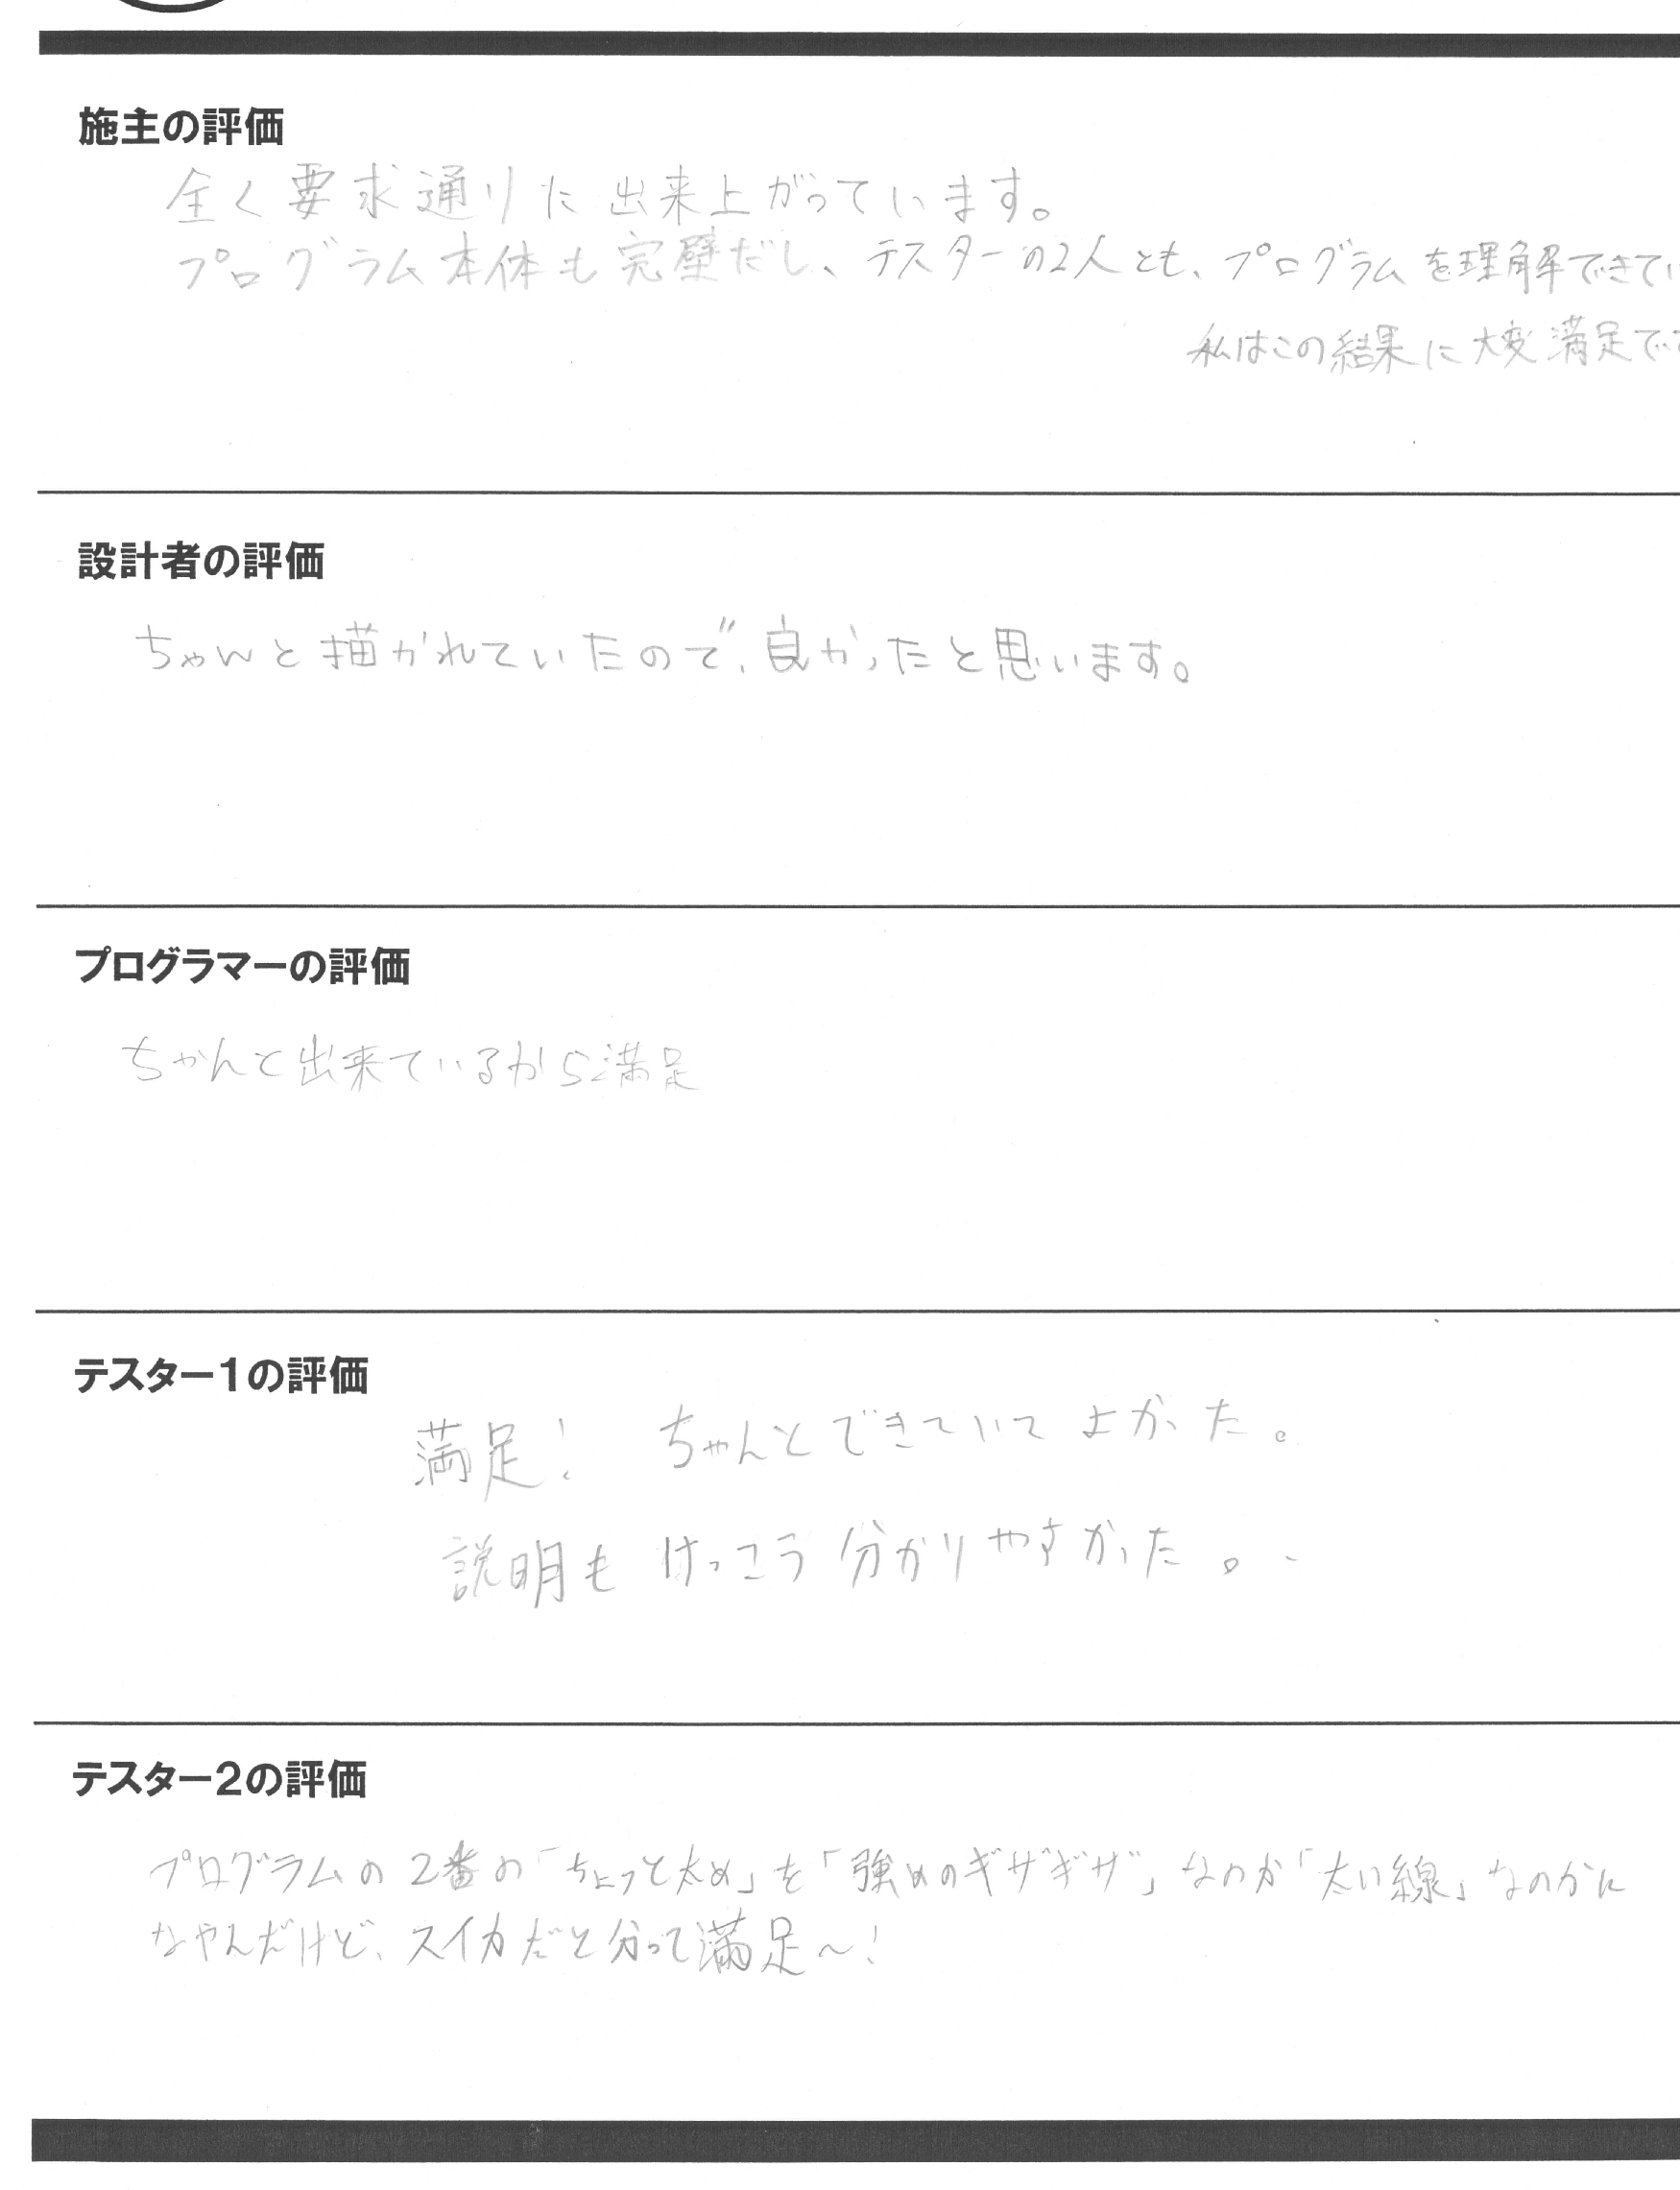 施主の評価
全く要求通りに出来上がっています。
プログラム本体も完璧だし、テスターの2人とも、プログラムを理解できてい
私はこの結果に大変満足で
設計者の評価
ちゃんと描かれていたので、良かったと思います。
プログラマーの評価
ちゃんと出来ているから満足
テスター1の評価
満足! ちゃんとできていてよかった。
説明もけっこう分かりやすかった。
テスター2の評価
プログラムの2番の「ちょっと太め」を「強めのギザギザ」なのか「太い線」なのかに
なやんだけど、スイカだと分って満足〜!